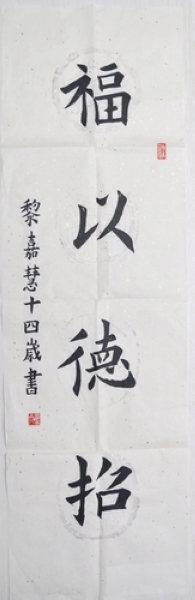 福以德招
黎嘉慧十四歲書